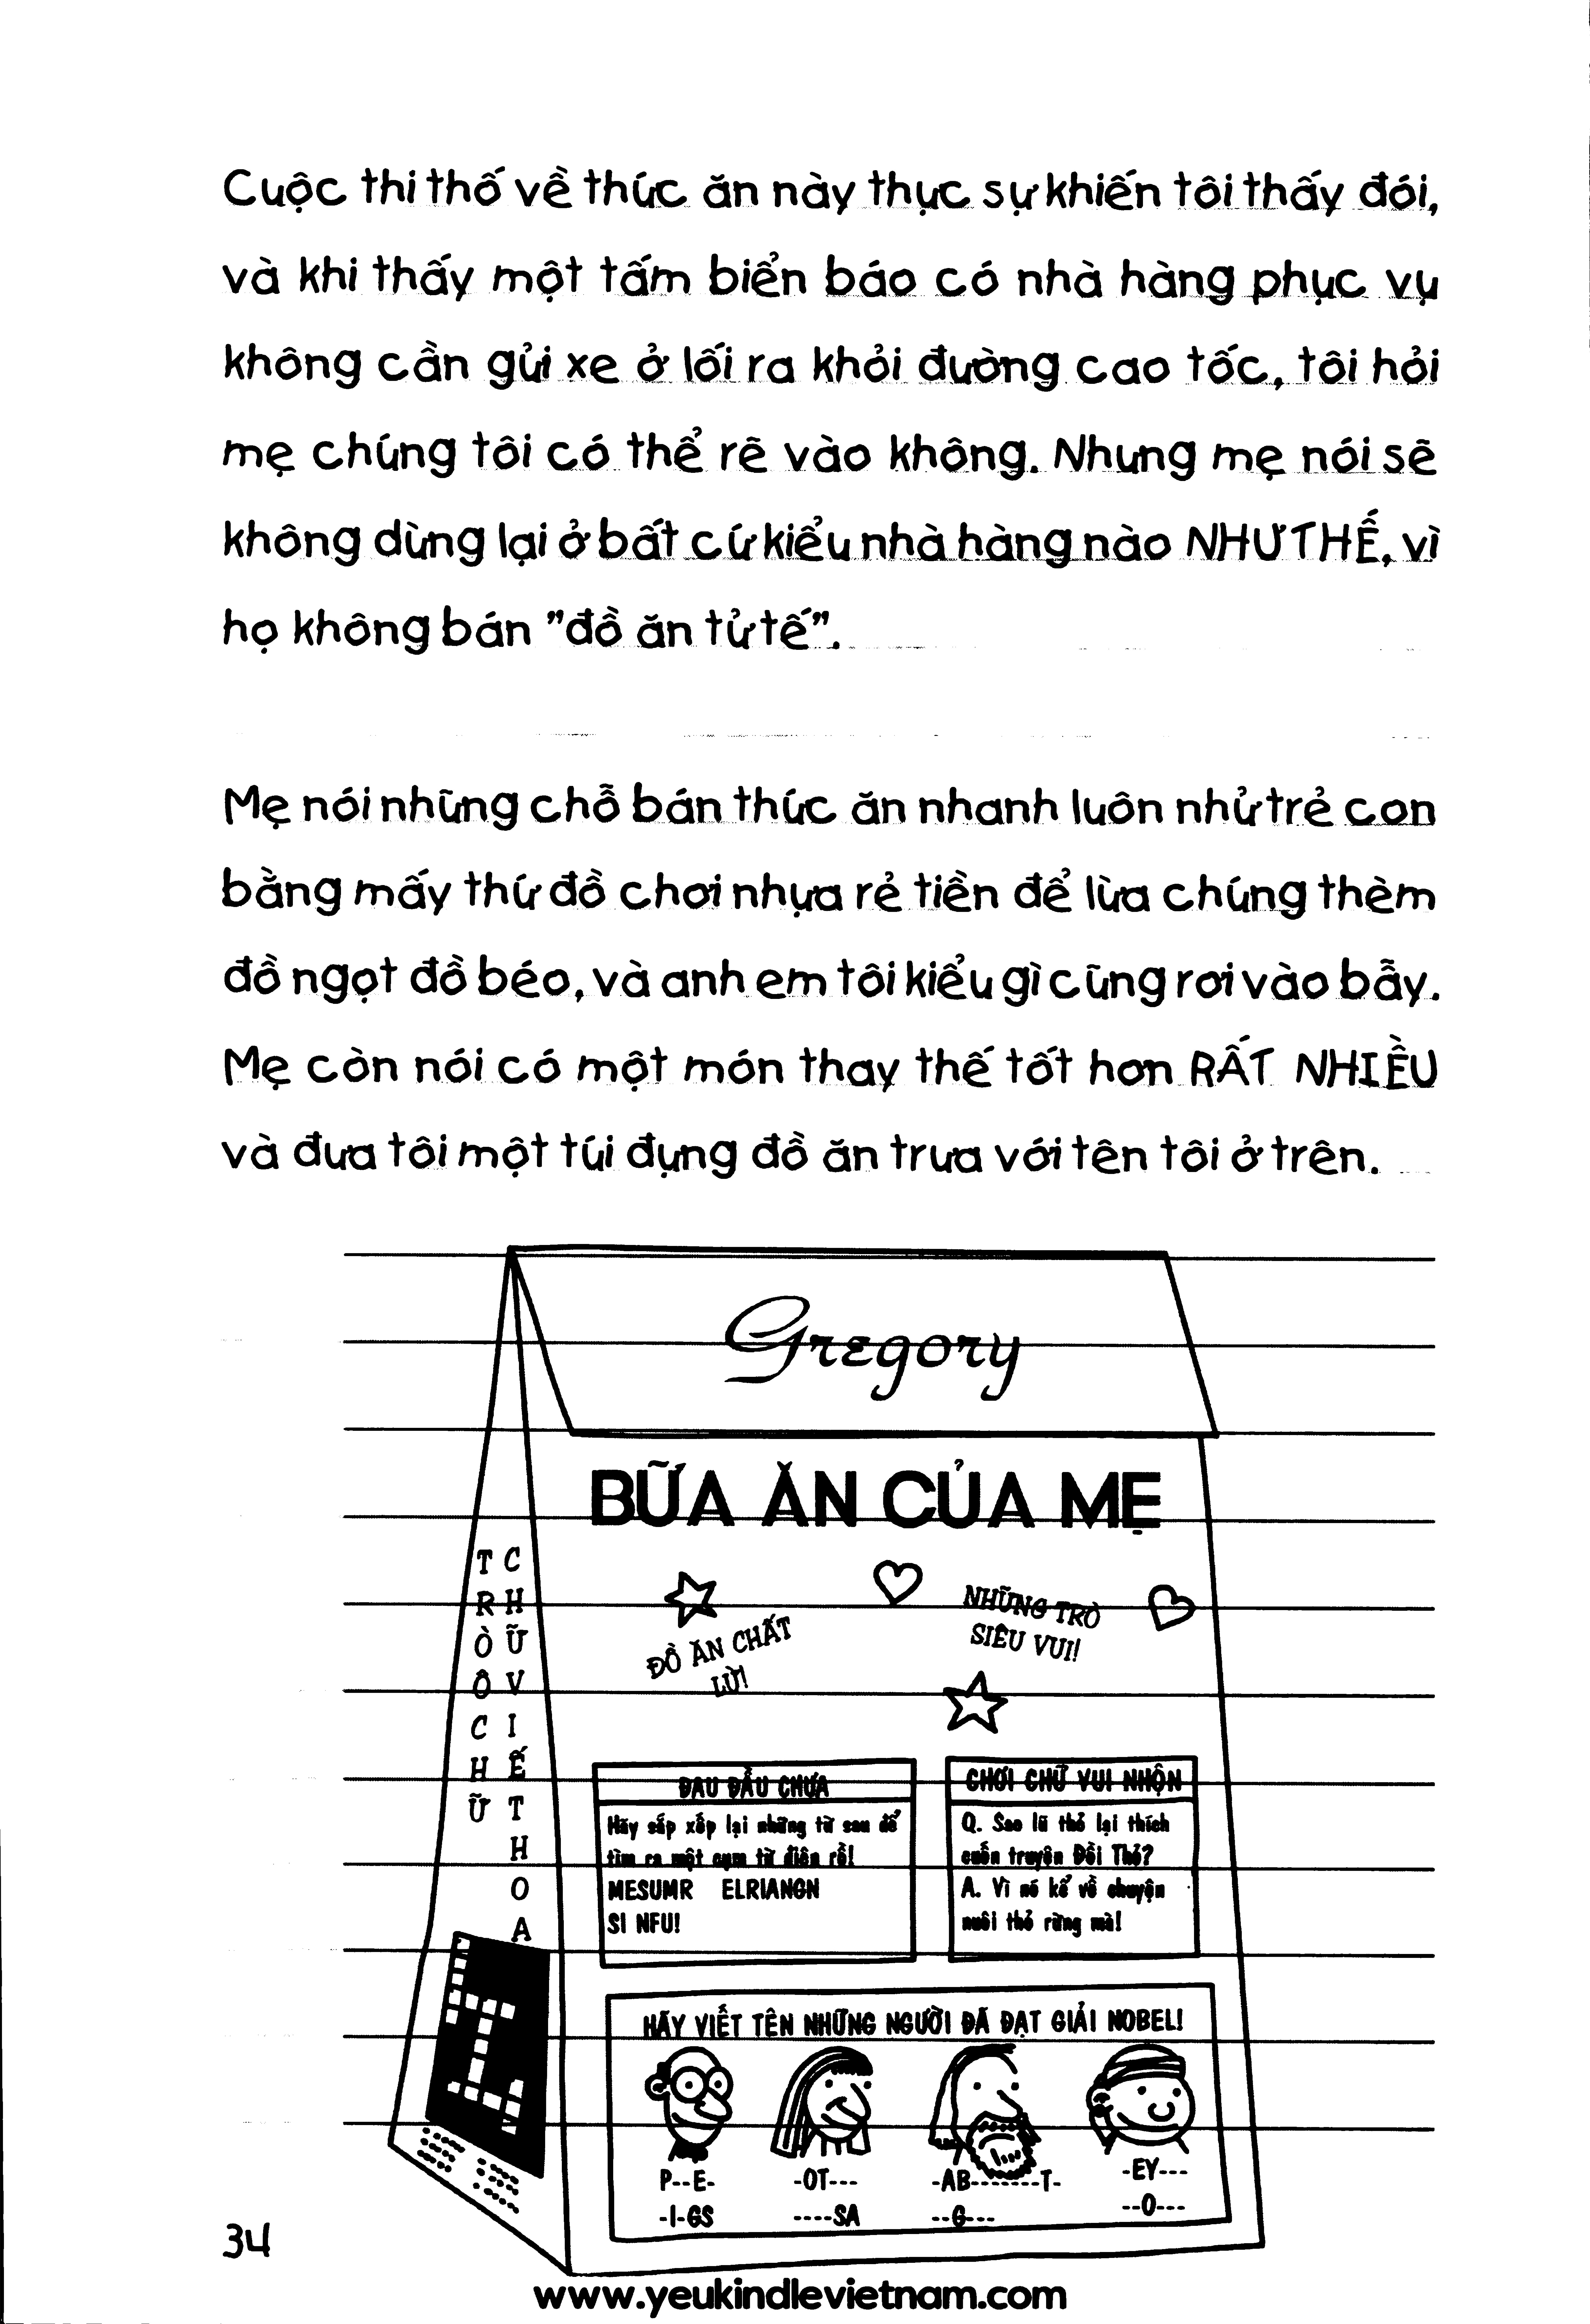 Cuộc thi thố về thức ăn này thực sự khiến tôi thấy đói,
và khi thấy một tấm biển báo có nhà hàng phục vụ
không cần gửi xe ở lối ra khỏi đường cao tốc, tôi hỏi
mẹ chúng tôi có thể rẽ vào không. Nhưng mẹ nói sẽ
không dừng lại ở bất cứ kiểu nhà hàng nào NHƯ THẾ, vì
họ không bán "đồ ăn tử tế".
Mẹ nói những chỗ bán thức ăn nhanh luôn nhử trẻ con
bằng mấy thứ đồ chơi nhựa rẻ tiền để lừa chúng thèm
đồ ngọt đồ béo, và anh em tôi kiểu gì cũng rơi vào bẫy.
Mẹ còn nói có một món thay thế tốt hơn RẤT NHIỀU
và đưa tôi một túi đựng đồ ăn trưa với tên tôi ở trên.
Gregory
BỮA ĂN CỦA MẸ
TRÒ Ô CHỮ
CHỮ VIẾT HOA
ĐỒ ĂN CHẤT
LỪ!
NHỮNG TRÒ
SIÊU VUI!
ĐAU ĐẦU CHƯA
Hãy sắp xếp lại những từ sau để
tìm ra một cụm từ điên rồ!
MESUMR ELRIANGN
SI NFU!
CHƠI CHỮ VUI NHỘN
Q. Sao lũ thỏ lại thích
cuốn truyện Đồi Thỏ?
A. Vì nó kể về chuyện
nuôi thỏ rừng mà!
HÃY VIẾT TÊN NHỮNG NGƯỜI ĐÃ ĐẠT GIẢI NOBEL!
P--E-
-I-GS
-OT---
----SA
-AB-------T-
--G---
-EY---
--O---
34
www.yeukindlevietnam.com